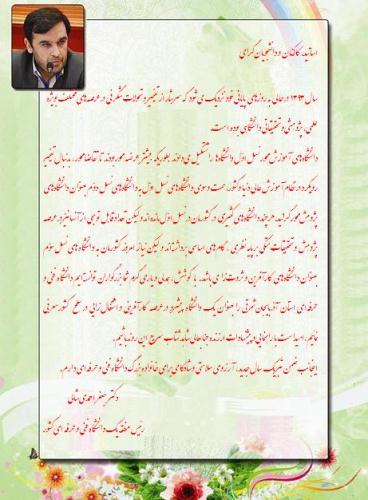 اساتید، کارکنان و دانشجویان گرامی
سال ۱۳۹۳ در حالی به روزهای پایانی خود نزدیک می شود که سرشار از تغییر و تحولات شگرفی در عرصه های مختلف بویژه
علمی، پژوهشی و تحقیقاتی دانشگاهی بوده است.
دانشگاه های آموزش محور نسل اول دانشگاه ها را تشکیل می دهند بطوریکه بیشتر عرضه محور بودند تا تقاضا محور، به دنبال تغییر
رویکرد در نظام آموزش عالی دنیا و کشور، حرکت و سوی دانشگاه های نسل اول به دانشگاه های نسل دوم بعنوان دانشگاه های
پژوهش محور گراید، هر چند دانشگاه های کثیری در کشورمان در نسل اول مانده اند ولیکن تعداد قابل توجهی از آنها نیز در عرصه
پژوهش و تحقیقات متکی بر پایه نظری، گام های اساسی برداشته اند و لیکن نیاز امروز کشورمان به دانشگاه های نسل سوم
بعنوان دانشگاه های کارآفرین و ثروت زا می باشد. با کوشش، همدلی و یاری گرم شما بزرگواران توانسته ایم دانشگاه فنی و
حرفه ای استان آذربایجان شرقی را بعنوان یک دانشگاه پیشرو در عرصه کارآفرینی و اشتغال زایی در سطح کشور معرفی
نمائیم، امید است با راهنمایی و پیشنهادات ارزنده جنابعالی شاهد شتاب سریع این روند باشیم.
اینجانب ضمن تبریک سال جدید، آرزوی سلامتی و شادکامی برای خانواده بزرگ دانشگاه فنی و حرفه ای دارم.
دکتر جعفر احمدی شالی
رئیس منطقه یک دانشگاه فنی و حرفه ای کشور